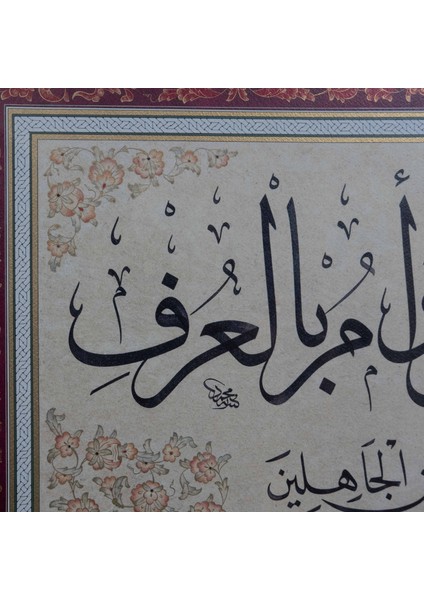 وَأْمُرْ بِالْعُرْفِ
الْجَاهِلِينَ